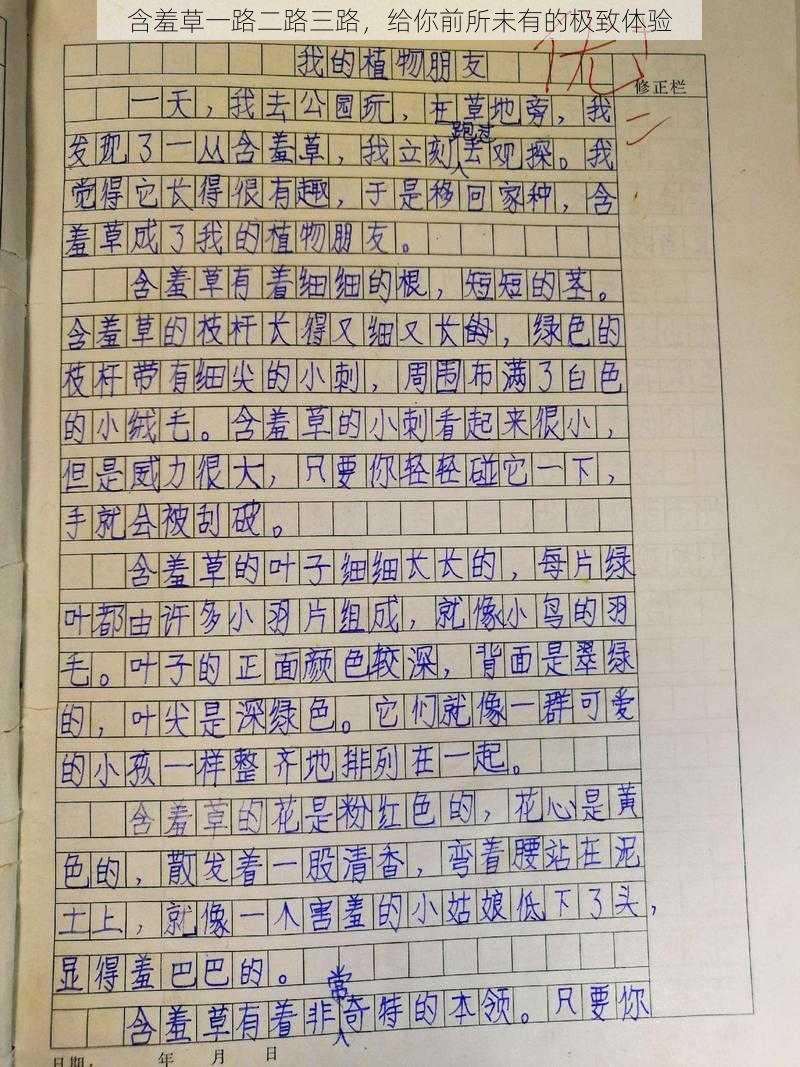 含羞草一路二路三路，给你前所未有的极致体验
我的植物朋友
优
修正栏
一天，我去公园玩，在草地旁，我
跑过
发现了一丛含羞草，我立刻去观探。我
觉得它长得很有趣，于是移回家种，含
羞草成了我的植物朋友。
含羞草有着细细的根，短短的茎。
含羞草的枝杆长得又细又长，绿色的
枝杆带有细尖的小刺，周围布满了白色
的小绒毛。含羞草的小刺看起来很小，
但是威力很大，只要你轻轻碰它一下，
手就会被刮破。
含羞草的叶子细细长长的，每片绿
叶都由许多小羽片组成，就像小鸟的羽
毛。叶子的正面颜色较深，背面是翠绿
的，叶尖是深绿色。它们就像一群可爱
的小孩一样整齐地排列在一起。
含羞草的花是粉红色的，花心是黄
色的，散发着一股清香，弯着腰站在泥
土上，就像一个害羞的小姑娘低下了头，
显得羞巴巴的。
常
含羞草有着非奇特的本领。只要你
日期： 年 月 日